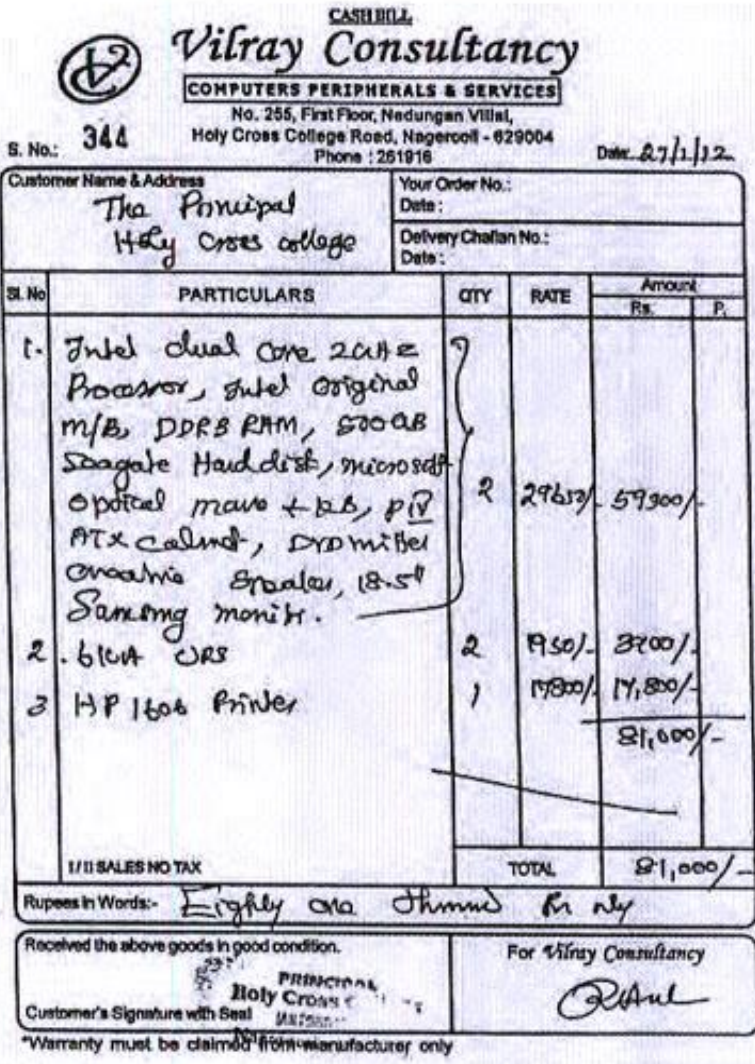 CASH BILL
Vilray Consultancy
COMPUTERS PERIPHERALS & SERVICES
No. 255, First Floor, Nedungan Villai,
Holy Cross College Road, Nagercoil - 629004
S. No.: 344
Phone : 261916
Date: 27/1/12
Customer Name & Address
The Principal
Holy Cross College
Your Order No.:
Date :
Delivery Challan No.:
Date :
Sl. No PARTICULARS QTY RATE Amount
Rs. P.
1. Intel dual Core 2GHz
Processor, Intel Original
M/B, DDR3 RAM, 500GB
Seagate Hard disk, microsoft
optical mouse + KB, PIV 2 29650/- 59300/-
ATX cabinet, DVD writer
creative Speaker, 18.5"
Samsung monitor.
2. UPS 2 1950/-
3 HP 1606 Printer 1 17800/- 17,800/-
81,000/-
I/II SALES NO TAX TOTAL 81,000/-
Rupees in Words:- Eighty one thousand Rs only
Received the above goods in good condition.
For Vilray Consultancy
PRINCIPAL
Holy Cross
Customer's Signature with Seal
*Warranty must be claimed from manufacturer only